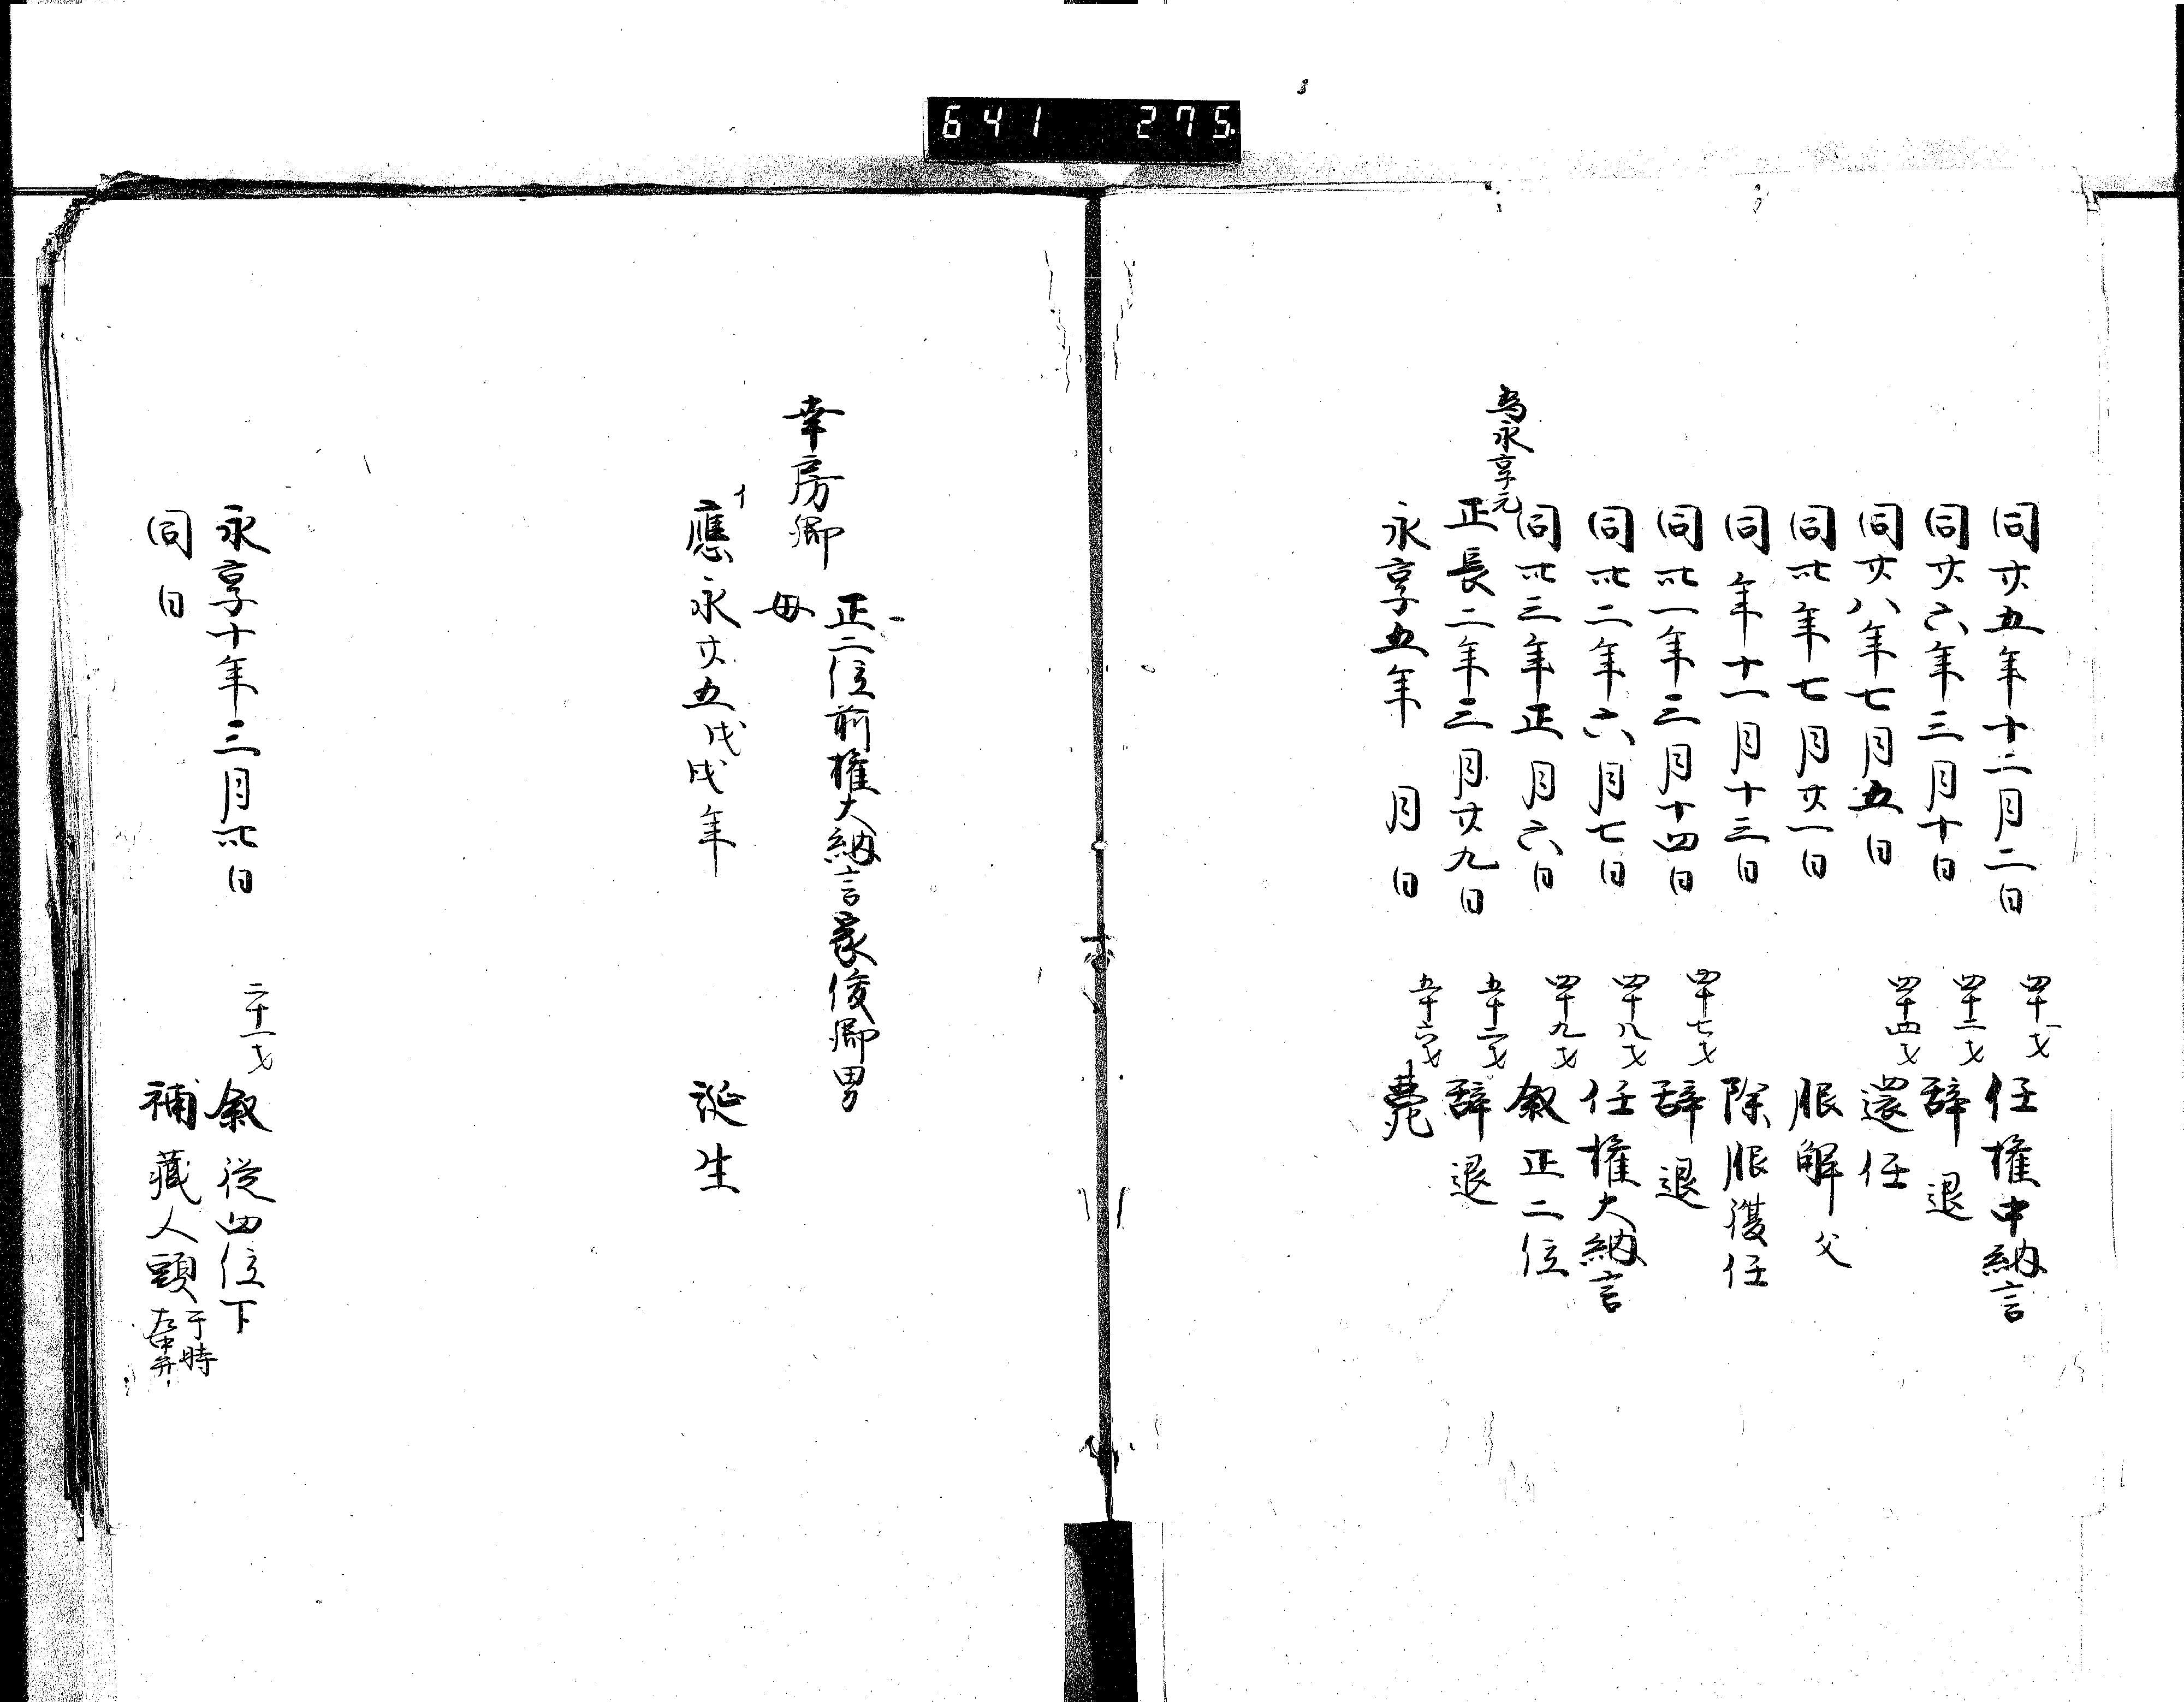 641 275
同廿五年十二月二日 四十一才 任権中納言
同廿六年三月十日 四十二才 辞退
同廿八年七月五日 四十四才 還任
同卅年七月廿一日 服解父
同年十一月十三日 除服復任
同卅一年三月十四日 四十七才 辞退
同卅二年六月七日 四十八才 任権大納言
同卅三年正月六日 四十九才 叙正二位
為永享元
正長二年三月廿九日 五十二才 辞退
永享五年 月 日 五十六才 薨
正二位前権大納言家俊卿男
幸房卿 母
應永廿五戊戌年 誕生
永享十年三月卅日 二十一才 叙従四位下
同日 補蔵人頭 于時
左中弁